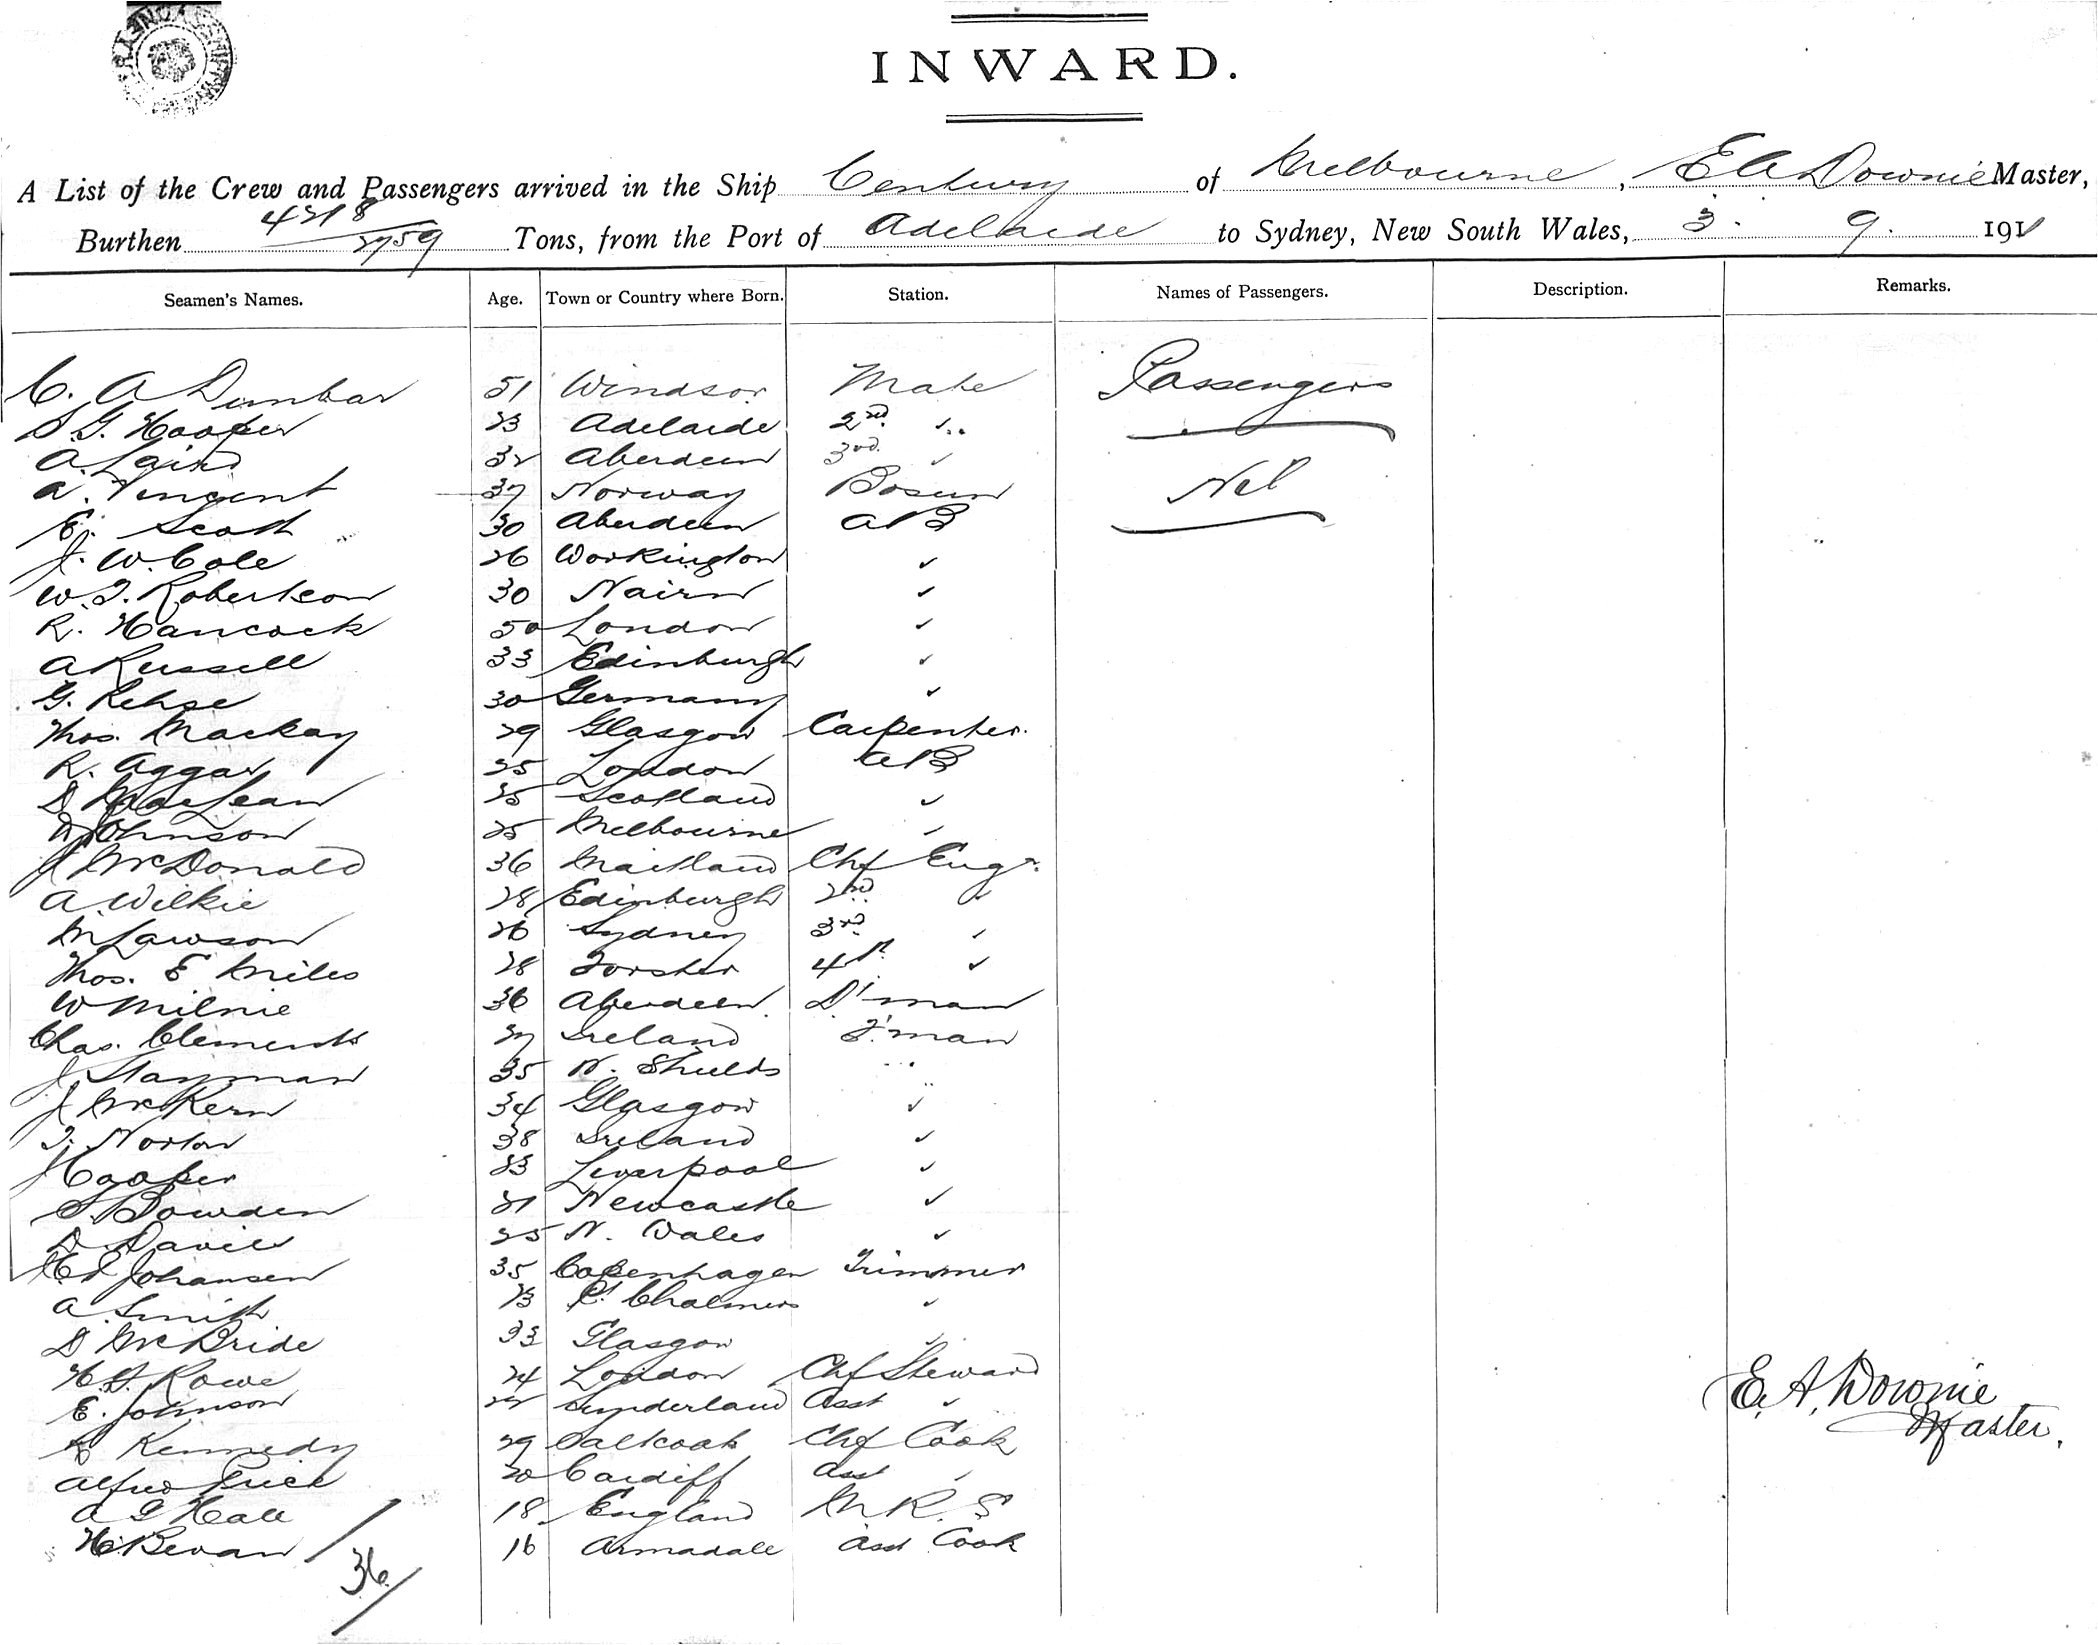 INWARD.
A List of the Crew and Passengers arrived in the Ship Century of Melbourne, E A Downie Master,
Burthen 4218 / 2759 Tons, from the Port of Adelaide to Sydney, New South Wales, 3. 9. 1911
Seamen's Names. Age. Town or Country where Born. Station. Names of Passengers. Description. Remarks.
C. A Dunbar 51 Windsor Mate Passengers
S. G. Hooper 23 Adelaide 2nd ..
A. Laird 32 Aberdeen 3rd ✓
A. Vincent 37 Norway Bosun Nil
E. Scott 30 Aberdeen AB
J. W. Cole 26 Workington ✓
W. J. Robertson 30 Nairn ✓
R. Hancock 50 London ✓
A Russell 33 Edinburgh ✓
G. Rehse 30 Germany ✓
Thos. Mackay 29 Glasgow Carpenter.
R. Aggar 25 London AB
D MacLean 25 Scotland ✓
Johnson 25 Melbourne ✓
J McDonald 36 Maitland Chf Engr.
A. Wilkie 28 Edinburgh 2nd ✓
M Lawson 26 Sydney 3rd ✓
Thos. E Miles 28 Forster 4th ✓
W Milnie 36 Aberdeen. D'man
Chas. Clements 27 Ireland F'man
J Stayman 35 N. Shields ..
J McKern 34 Glasgow ✓
T. Norton 38 Ireland ✓
J Cooper 23 Liverpool ✓
S. Bowden 21 Newcastle ✓
D. Davies 25 N. Wales ✓
Johansen 35 Copenhagen Trimmer
A. Smith 23 Pt Chalmers ✓
D McBride 33 Glasgow ✓
H. J. Rowe 24 London Chf Steward
E. Johnson 22 Sunderland Asst ✓
Kennedy 29 Saltcoats Chf Cook
Alfred Price 20 Cardiff Asst ✓
A G Hall 18 England M R. S
H. Bevan 16 Armadale Asst Cook
36
E. A. Downie
Master.